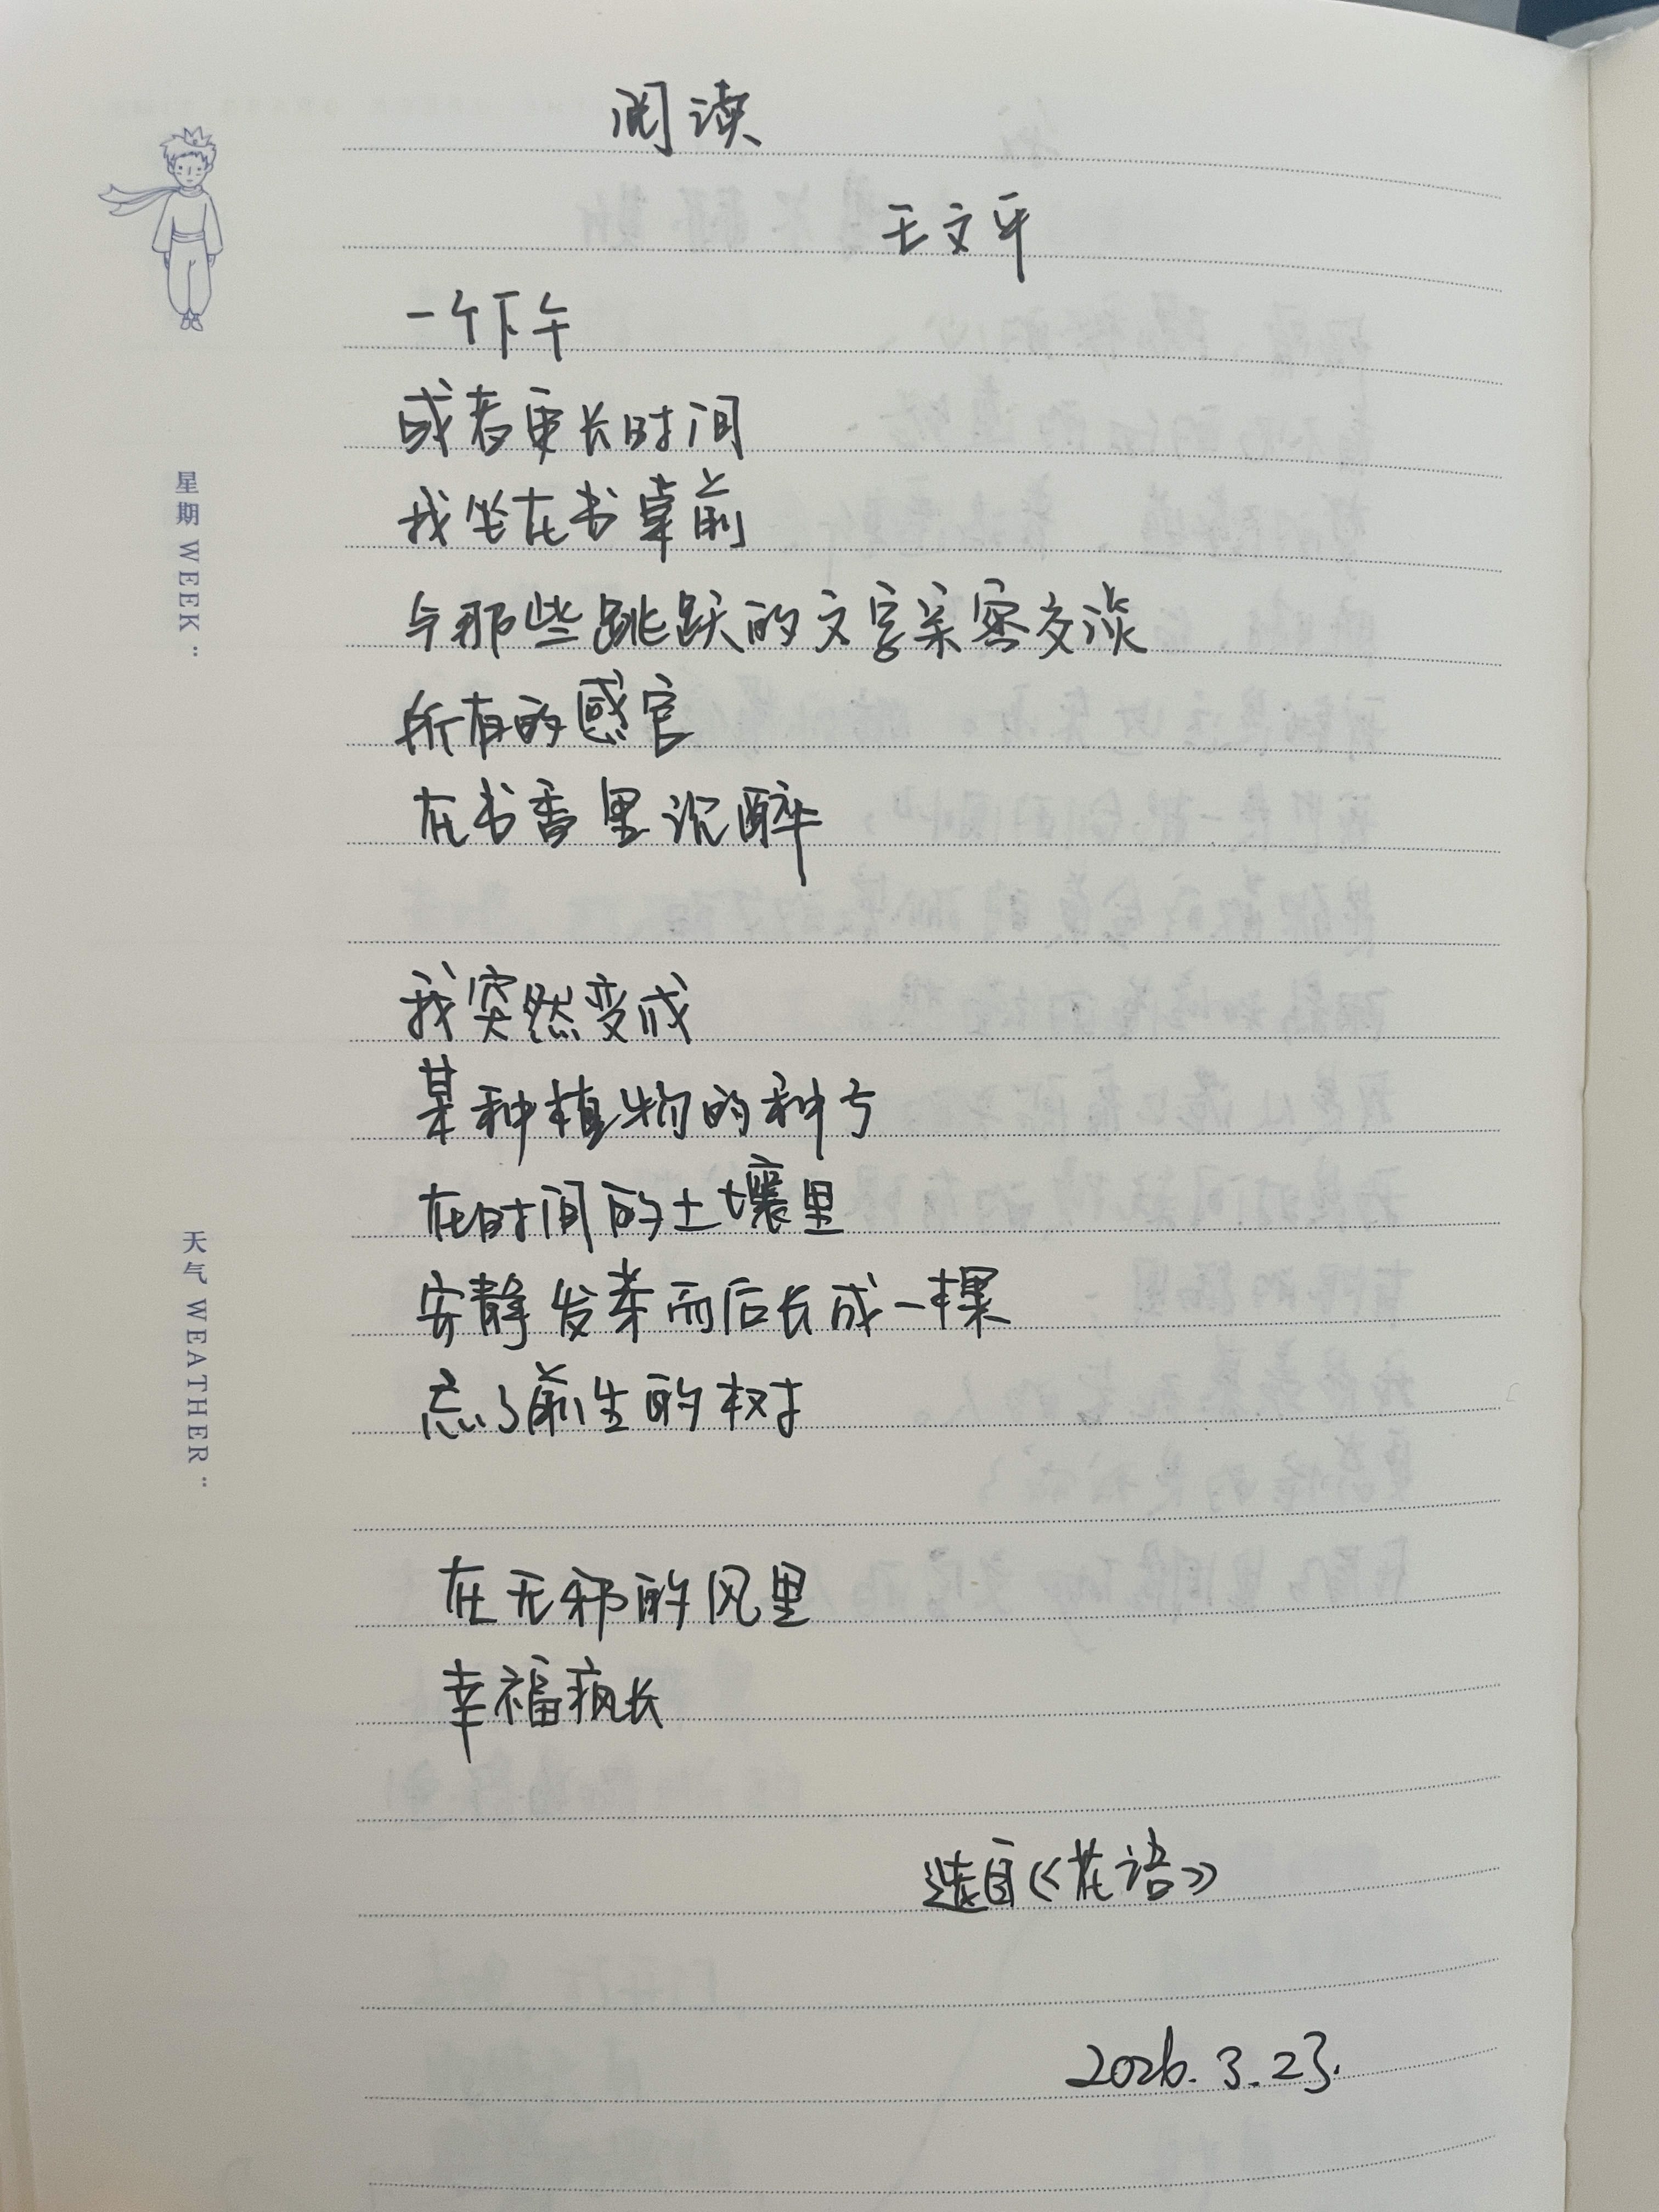 阅读
王文平
一个下午
或者更长时间
我坐在书桌前
与那些跳跃的文字亲密交谈
所有的感官
在书香里沉醉
我突然变成
某种植物的种子
在时间的土壤里
安静发芽而后长成一棵
忘了前生的树
在无邪的风里
幸福疯长
选自《花语》
2026.3.23.
星期 WEEK:
天气 WEATHER: